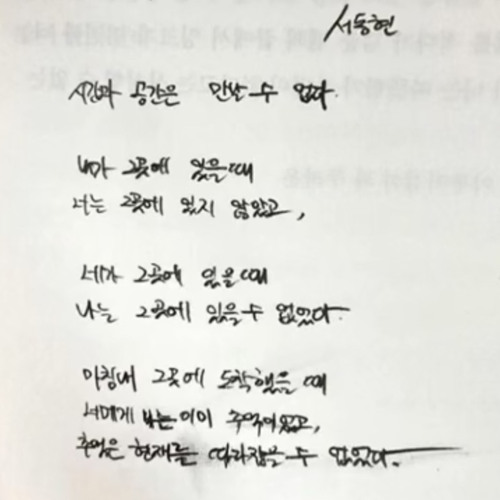 서동현
시간과 공간은 만날 수 없다.
내가 그곳에 있을 때
너는 그곳에 있지 않았고,
네가 그곳에 있을 때
나는 그곳에 있을 수 없었다.
마침내 그곳에 도착했을 때
너에게 나는 이미 추억이었고,
추억은 현재를 따라잡을 수 없었다.